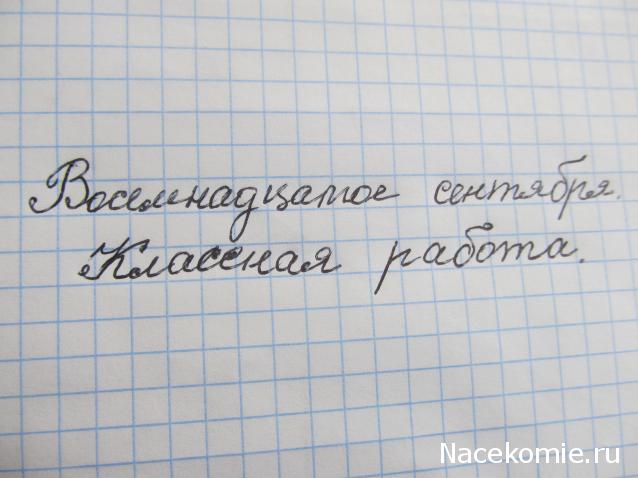 Восемнадцатое сентября.
Классная работа.
Nacekomie.ru